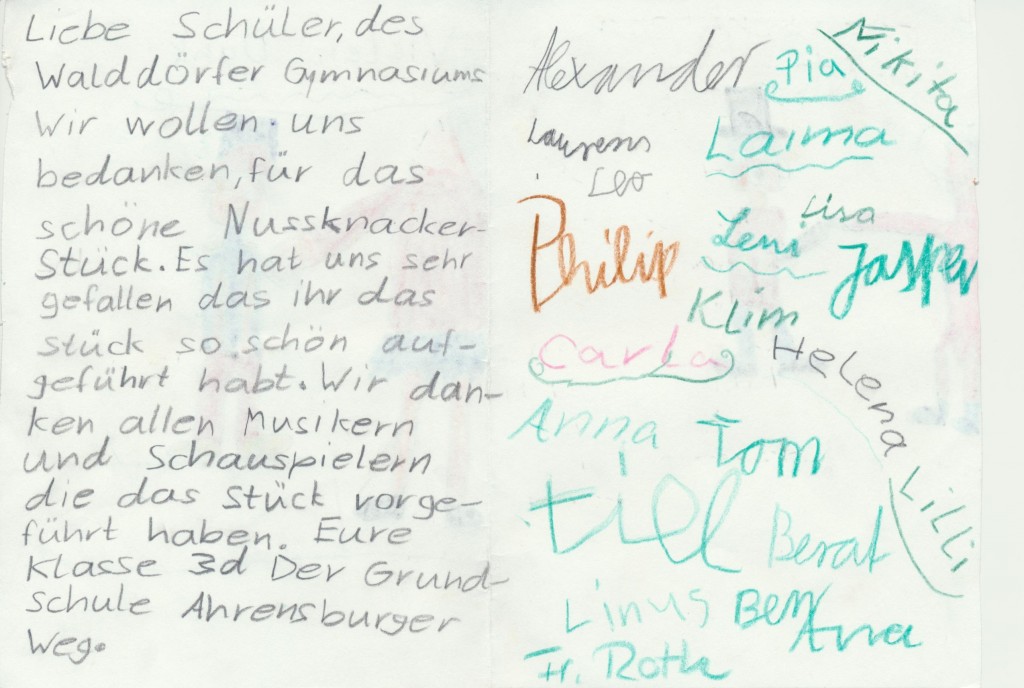 Liebe Schüler, des
Walddörfer Gymnasiums
Wir wollen uns
bedanken, für das
schöne Nussknacker-
Stück. Es hat uns sehr
gefallen das ihr das
stück so schön auf-
geführt habt. Wir dan-
ken allen Musikern
und Schauspielern
die das Stück vorge-
führt haben. Eure
Klasse 3d Der Grund-
schule Ahrensburger
Weg.
Alexander
Pia
Nikita
Laurens
Laima
Leo
Lisa
Philip
Leni
Jasper
Klim
Carla
Helena
Anna
Tom
Lilli
till
Berat
Linus
Ben
Fr. Roth